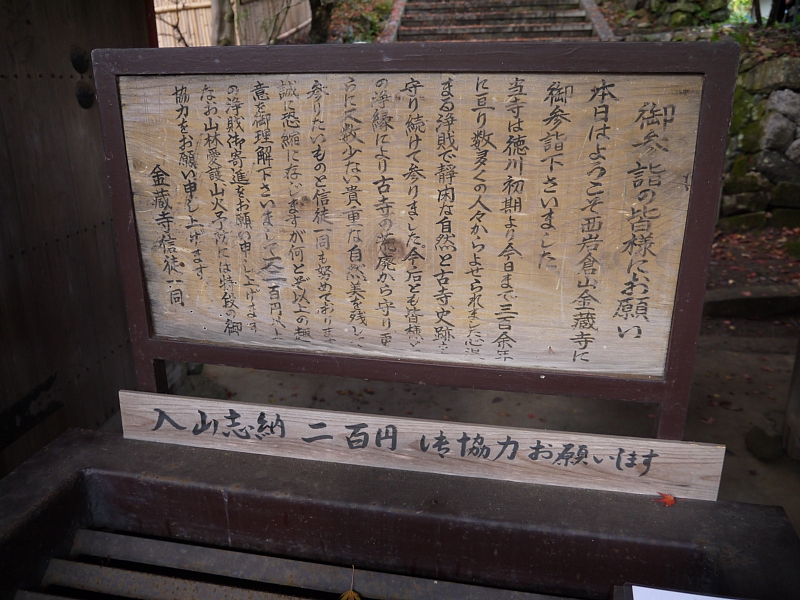 御参詣の皆様にお願い
本日はようこそ西岩倉山金蔵寺に
御参詣下さいました
当寺は徳川初期より今日まで三百余年
に亘り数多くの人々からよせられました心温
まる浄財で静閑な自然と古寺史跡を
守り続けて参りました今后とも皆様の
の浄縁により古寺の荒廃から守り更
らに又数少ない貴重な自然美を残して
参りたいものと信徒一同も努めております
誠に恐縮に存じますが何とぞ以上の趣
意を御理解下さいまして一人二百円以上
の浄財御寄進をお願い申し上げます
なお山林愛護山火予防には特段の御
協力をお願い申し上げます
金蔵寺信徒一同
入山志納 二百円 御協力お願いします